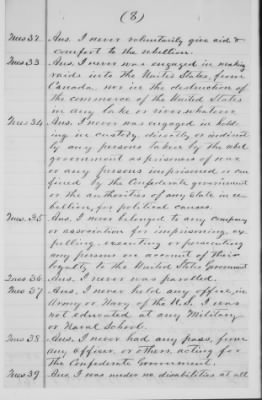 (8)
Ques 32. Ans. I never voluntarily give aid &
comfort to the rebellion.
Ques 33 Ans. I never was engaged in making
raids into the United States, from
Canada. nor in the destruction of
the commerce of the United States
on any lake or river whatever.
Ques 34. Ans. I never was engaged in hold-
ing in custody directly or indirectly
any persons taken by the
government as prisoners of war
or any persons imprisoned or con
fined by the Confederate government
or the authorities of any State in re-
bellion, for political causes.
Ques. 35 Ans. I never belonged to any company
or association for imprisoning, ex
pelling, executing or persecuting
any persons on account of their
loyalty to the United States Government
Ques 36 Ans. I never was parolled.
Ques 37 Ans. I never held any office, in
Army or Navy of the U.S. I was
not educated at any Military
or Naval School.
Ques 38 Ans. I never had any pass, from
any officer, or others, acting for
the Confederate Government.
Ques. 39 Ans. I was under no disabilities at all